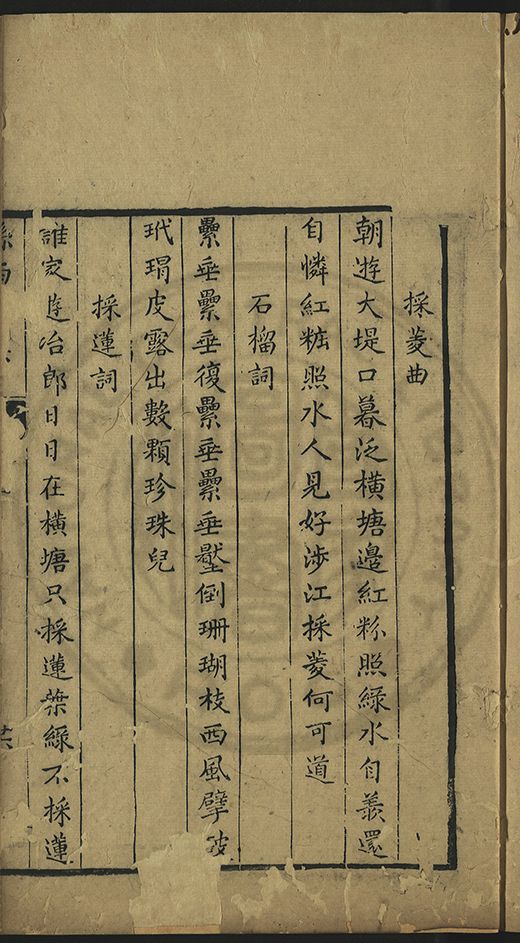 採菱曲
朝遊大堤口暮泛橫塘邊紅粉照綠水自羨還
自憐紅粧照水人見好涉江採菱何可道
石榴詞
纍垂纍垂復纍垂纍垂壓倒珊瑚枝西風擘破
玳瑁皮露出數顆珍珠兒
採蓮詞
誰家遊冶郎日日在橫塘只採蓮葉綠不採蓮